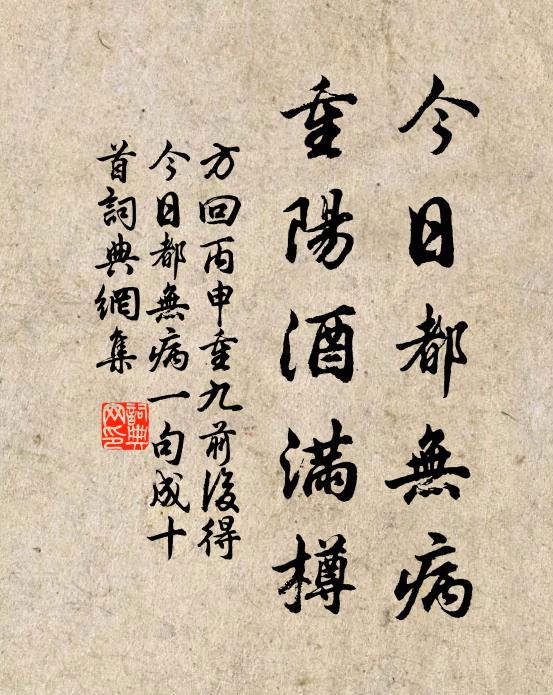 今日都無病
重陽酒滿樽
方回丙申重九前後得
今日都無病一句成十
首詞典網集
詞典網印